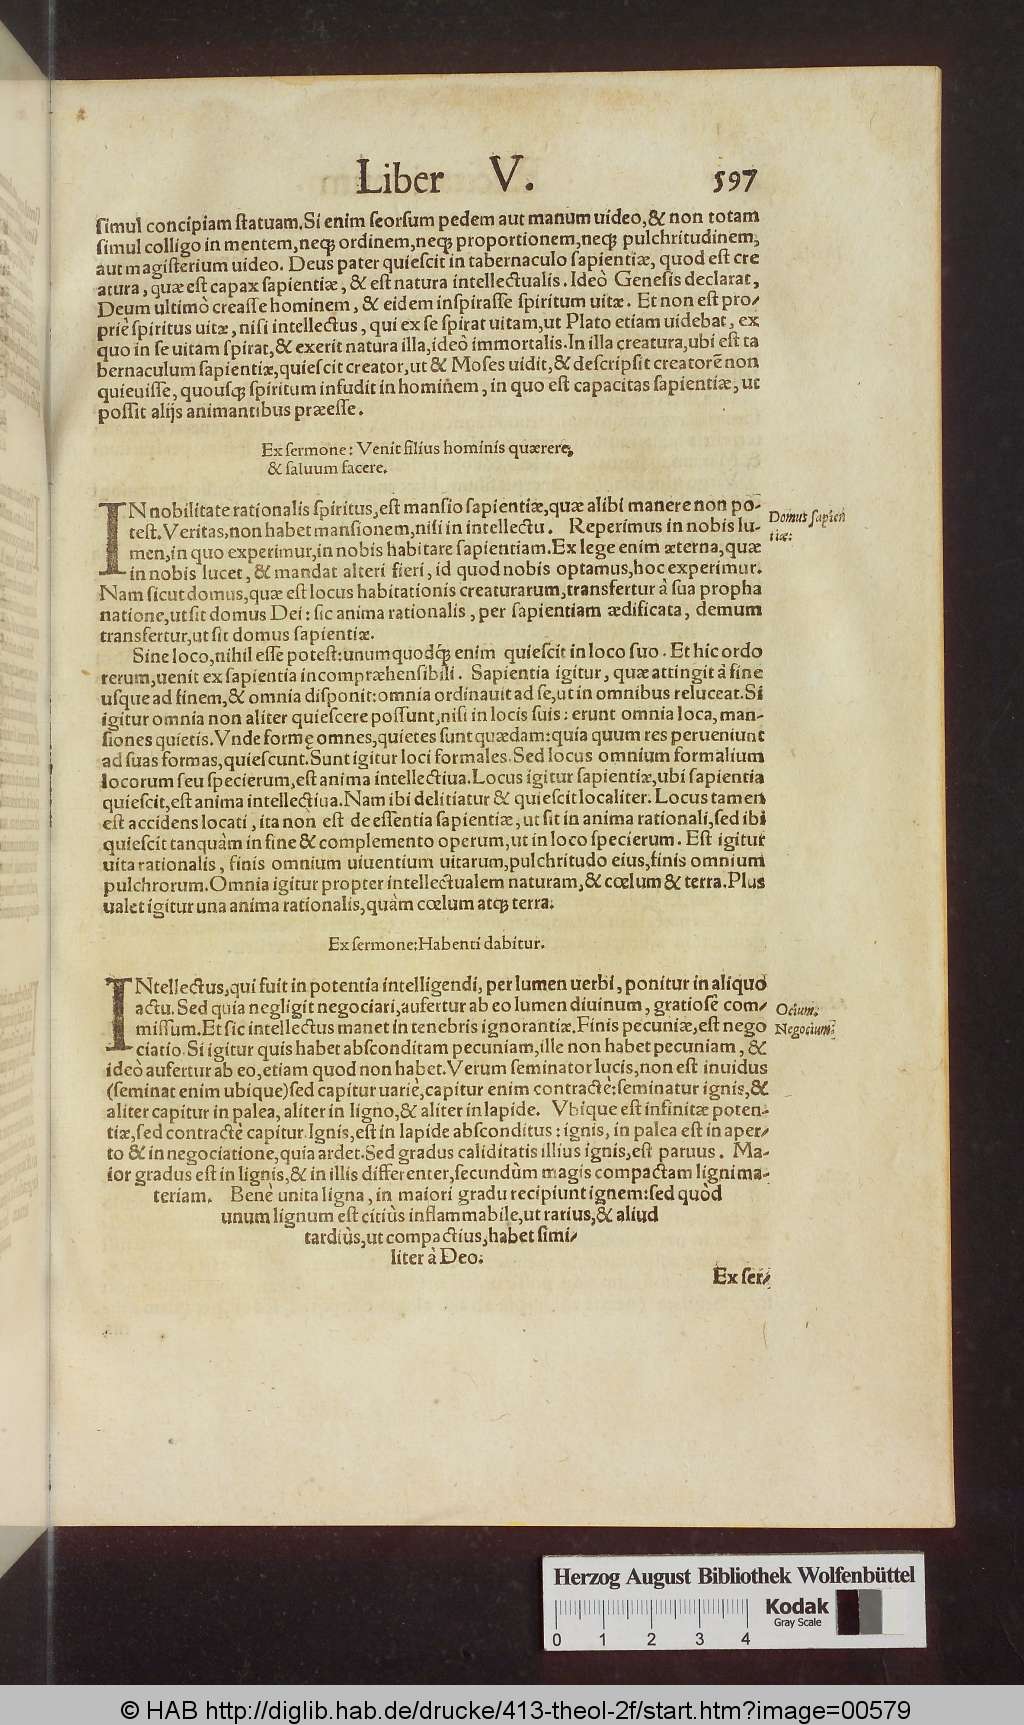 Liber V. 597
simul concipiam statuam. Si enim seorsum pedem aut manum uideo, & non totam
simul colligo in mentem, neq; ordinem, neq; proportionem, neq; pulchritudinem,
aut magisterium uideo. Deus pater quiescit in tabernaculo sapientiæ, quod est cre
atura, quæ est capax sapientiæ, & est natura intellectualis. Ideò Genesis declarat,
Deum ultimò creasse hominem, & eidem inspirasse spiritum uitæ. Et non est pro-
priè spiritus uitæ, nisi intellectus, qui ex se spirat uitam, ut Plato etiam uidebat, ex
quo in se uitam spirat, & exerit natura illa, ideò immortalis. In illa creatura, ubi est ta
bernaculum sapientiæ, quiescit creator, ut & Moses uidit, & descripsit creatorē non
quieuisse, quousq; spiritum infudit in hominem, in quo est capacitas sapientiæ, ut
possit alijs animantibus præesse.
Ex sermone: Venit filius hominis quærere,
& saluum facere.
IN nobilitate rationalis spiritus, est mansio sapientiæ, quæ alibi manere non po-
test. Veritas, non habet mansionem, nisi in intellectu. Reperimus in nobis lu-
men, in quo experimur, in nobis habitare sapientiam. Ex lege enim æterna, quæ
in nobis lucet, & mandat alteri fieri, id quod nobis optamus, hoc experimur.
Nam sicut domus, quæ est locus habitationis creaturarum, transfertur à sua propha
natione, ut sit domus Dei: sic anima rationalis, per sapientiam ædificata, demum
transfertur, ut sit domus sapientiæ.
Domus sapien
tiæ:
Sine loco, nihil esse potest: unumquodq; enim quiescit in loco suo. Et hic ordo
rerum, uenit ex sapientia incompræhensibili. Sapientia igitur, quæ attingit à fine
usque ad finem, & omnia disponit: omnia ordinauit ad se, ut in omnibus reluceat. Si
igitur omnia non aliter quiescere possunt, nisi in locis suis: erunt omnia loca, man-
siones quietis. Vnde formę omnes, quietes sunt quædam: quia quum res perueniunt
ad suas formas, quiescunt. Sunt igitur loci formales. Sed locus omnium formalium
locorum seu specierum, est anima intellectiua. Locus igitur sapientiæ, ubi sapientia
quiescit, est anima intellectiua. Nam ibi delitiatur & quiescit localiter. Locus tamen
est accidens locati, ita non est de essentia sapientiæ, ut sit in anima rationali, sed ibi
quiescit tanquàm in fine & complemento operum, ut in loco specierum. Est igitur
uita rationalis, finis omnium uiuentium uitarum, pulchritudo eius, finis omnium
pulchrorum. Omnia igitur propter intellectualem naturam, & cœlum & terra. Plus
ualet igitur una anima rationalis, quàm cœlum atq; terra.
Ex sermone: Habenti dabitur.
INtellectus, qui fuit in potentia intelligendi, per lumen uerbi, ponitur in aliquo
actu. Sed quia negligit negociari, aufertur ab eo lumen diuinum, gratiosè com-
missum. Et sic intellectus manet in tenebris ignorantiæ. Finis pecuniæ, est nego
ciatio. Si igitur quis habet absconditam pecuniam, ille non habet pecuniam, &
ideò aufertur ab eo, etiam quod non habet. Verum seminator lucis, non est inuidus
(seminat enim ubique) sed capitur uariè, capitur enim contractè: seminatur ignis, &
aliter capitur in palea, aliter in ligno, & aliter in lapide. Vbique est infinitæ poten-
tiæ, sed contractè capitur. Ignis, est in lapide absconditus: ignis, in palea est in aper-
to & in negociatione, quia ardet. Sed gradus caliditatis illius ignis, est paruus. Ma-
ior gradus est in lignis, & in illis differenter, secundùm magis compactam ligni ma-
teriam. Benè unita ligna, in maiori gradu recipiunt ignem: sed quòd
unum lignum est citiùs inflammabile, ut rarius, & aliud
tardiùs, ut compactius, habet simi-
liter à Deo.
Ocium.
Negocium.
Ex ser-
Herzog August Bibliothek Wolfenbüttel
0 1 2 3 4
Kodak
Gray Scale
© HAB http://diglib.hab.de/drucke/413-theol-2f/start.htm?image=00579